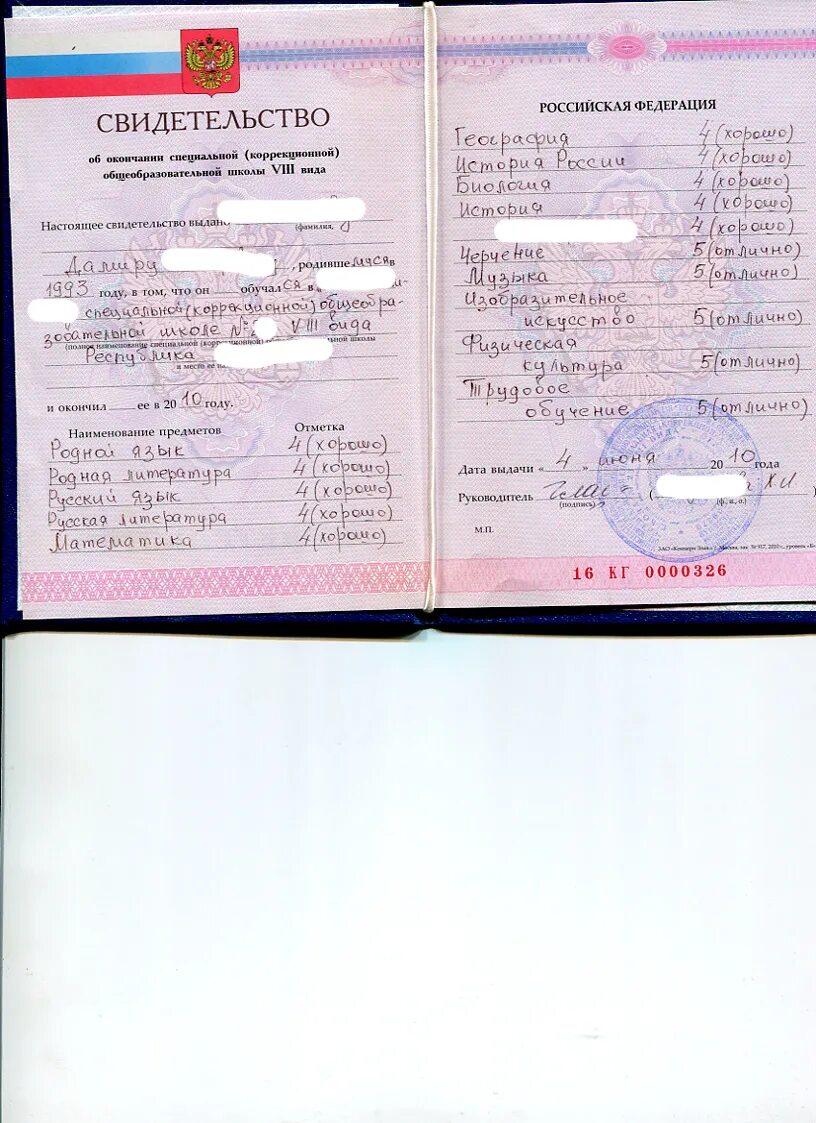 СВИДЕТЕЛЬСТВО
об окончании специальной (коррекционной)
общеобразовательной школы VIII вида
Настоящее свидетельство выдано
(фамилия,
Дамиру , родившемуся в
1993 году, в том, что он обучался в
специальной (коррекционной) общеобра-
зовательной школе № VIII вида
(полное наименование специальной школы
Республика
и место ее
и окончил ее в 2010 году.
Наименование предметов Отметка
Родной язык 4 (хорошо)
Родная литература 4 (хорошо)
Русский язык 4 (хорошо)
Русская литература 4 (хорошо)
Математика 4 (хорошо)
РОССИЙСКАЯ ФЕДЕРАЦИЯ
География 4 (хорошо)
История России 4 (хорошо)
Биология 4 (хорошо)
История 4 (хорошо)
4 (хорошо)
Черчение 5 (отлично)
Музыка 5 (отлично)
Изобразительное
искусство 5 (отлично)
Физическая
культура 5 (отлично)
Трудовое
обучение 5 (отлично)
Дата выдачи « 4 » июня 2010 года
Руководитель ( Х И )
(подпись) (ф., и., о.)
М.П.
16 КГ 0000326